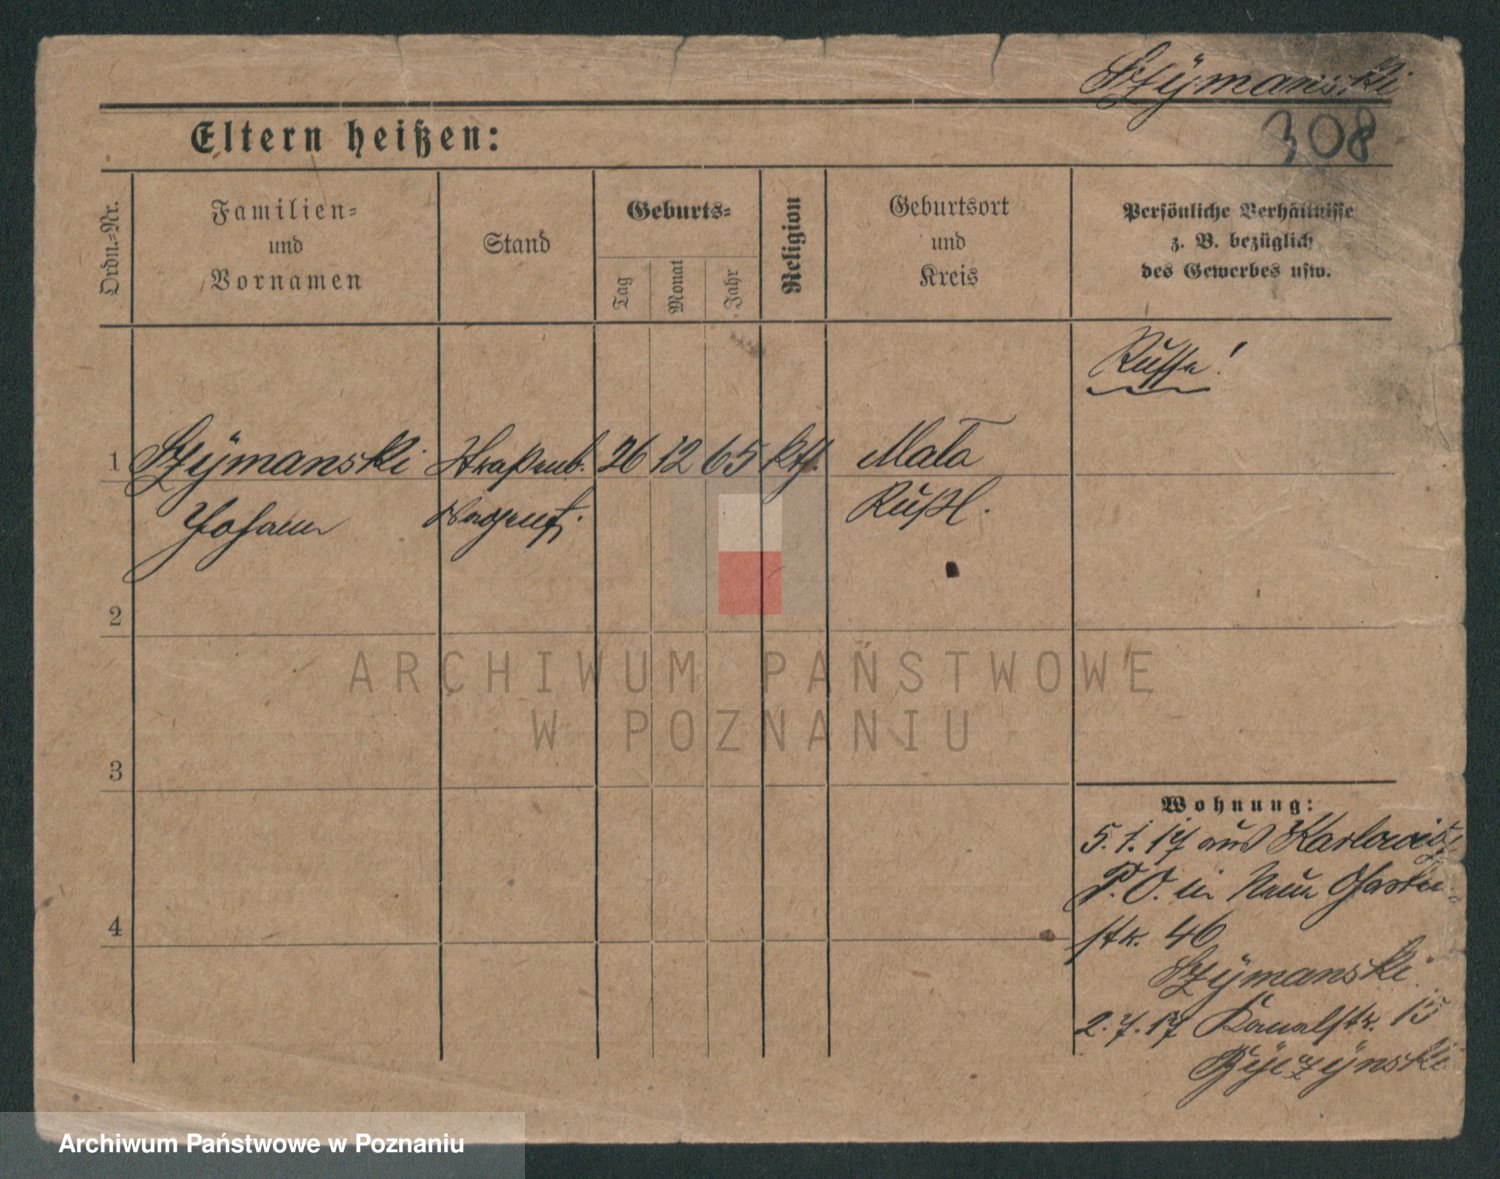 Szÿmanski
308
Eltern heißen:
Ordn.-Nr.
Familien=
und
Vornamen
Stand
Geburts=
Tag
Monat
Jahr
Religion
Geburtsort
und
Kreis
Persönliche Verhältnisse
z. B. bezüglich
des Gewerbes usw.
Russe!
1 Szÿmanski Straßenb. 26 12 65 kth. Mala
Johann Rußl.
2
3
4
Wohnung:
5. 1. 17 aus Karlowitz
P. O. in Neue Garten
str. 46
Szÿmanski
2. 7. 17 Kanalstr. 15
ARCHIWUM PAŃSTWOWE
W POZNANIU
Archiwum Państwowe w Poznaniu